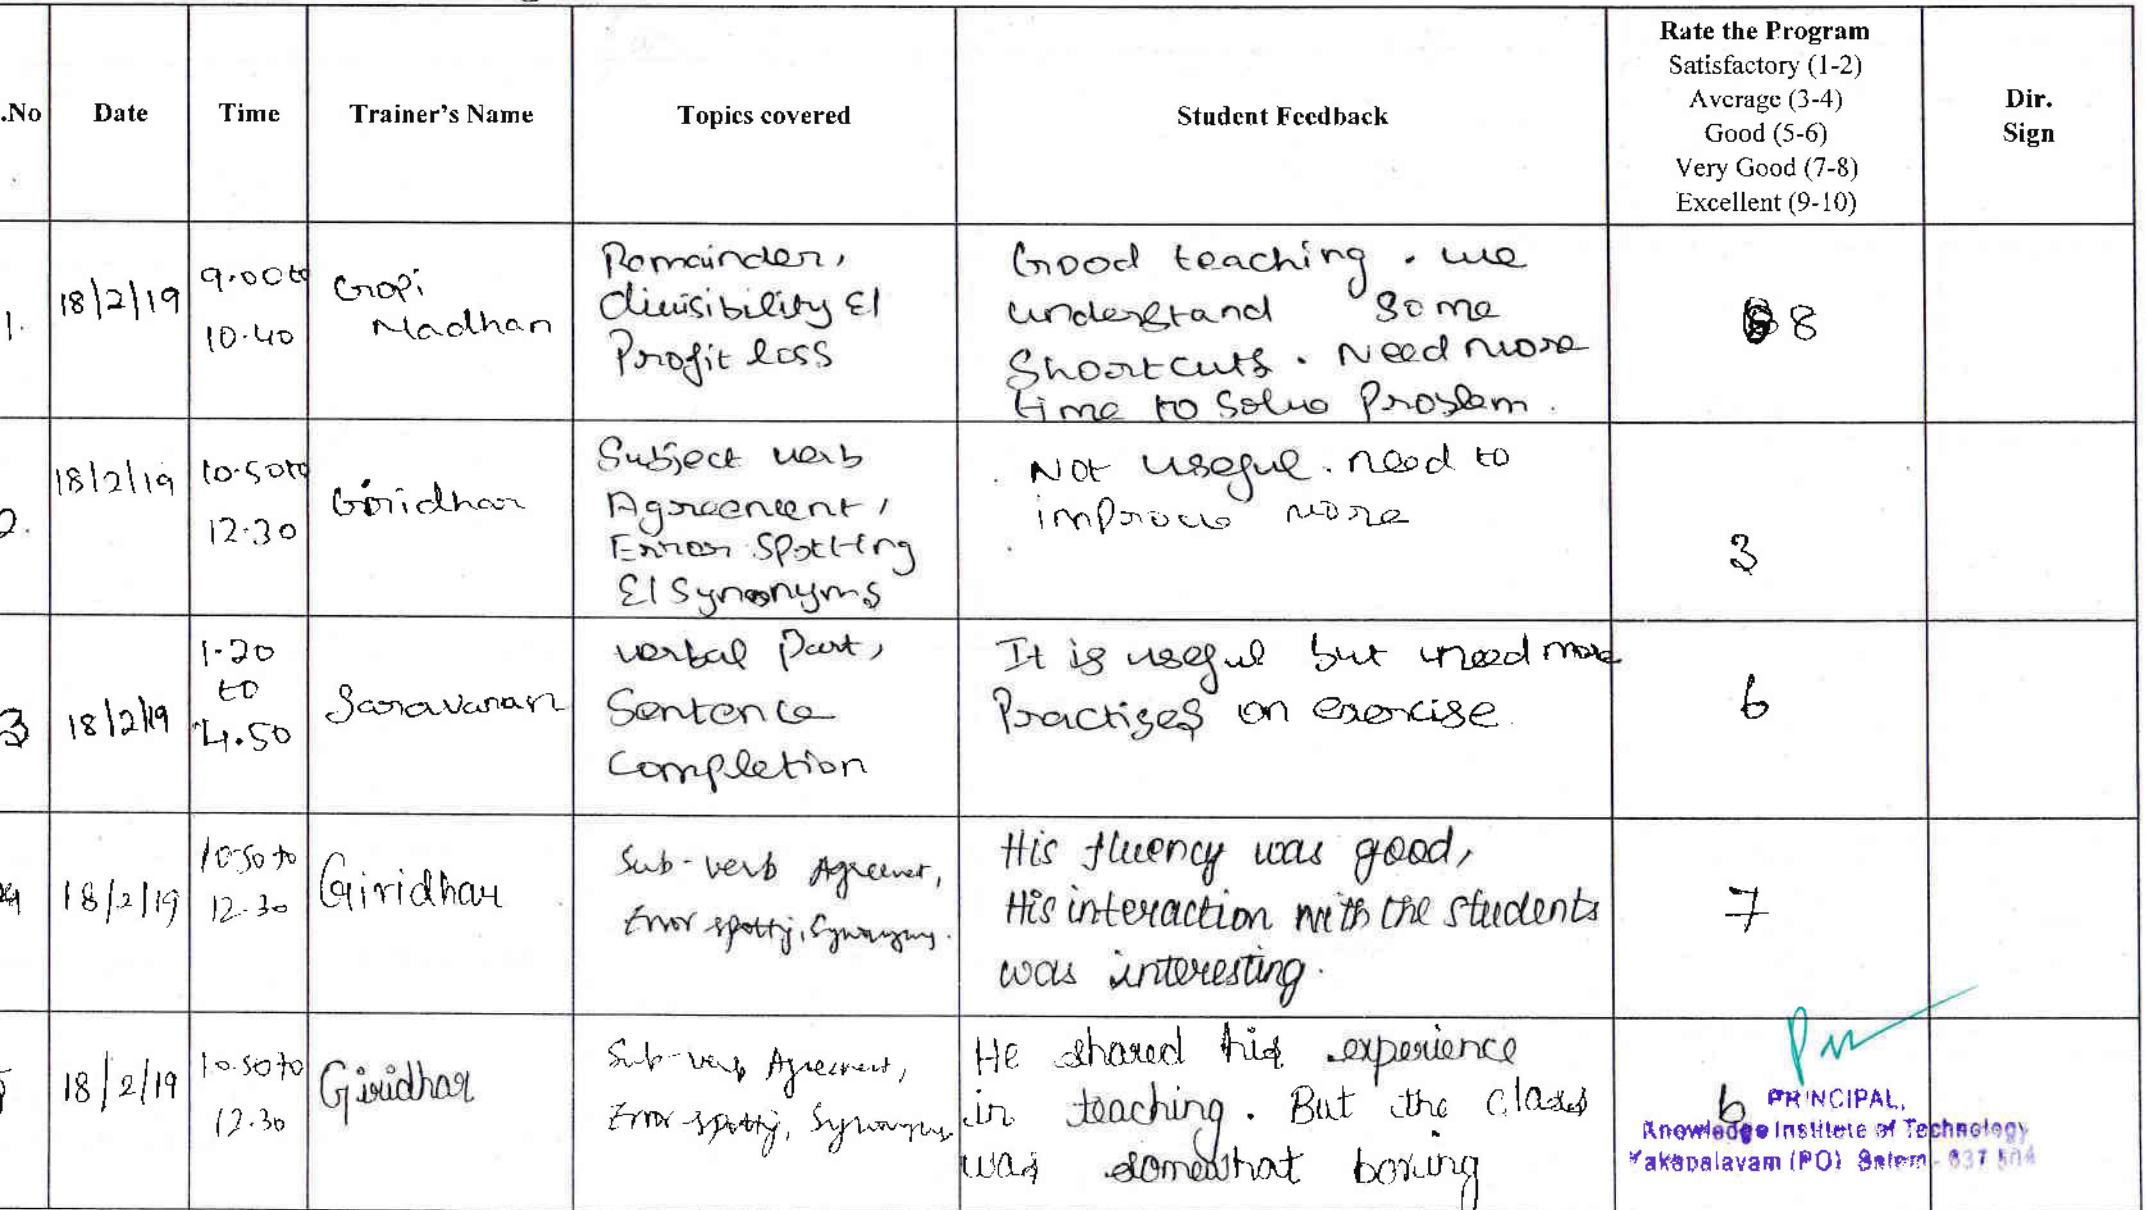 .No
Date
Time
Trainer's Name
Topics covered
Student Feedback
Rate the Program
Satisfactory (1-2)
Average (3-4)
Good (5-6)
Very Good (7-8)
Excellent (9-10)
Dir.
Sign
1.
18/2/19
9.00 to
10.40
Gopi
Madhan
Remainder,
divisibility &
Profit loss
Good teaching. we
understand some
Shortcuts. Need more
time to solve Problem.
8
2.
18/2/19
10.50 to
12.30
Giridhar
Subject verb
Agreement,
Error Spotting
& Synonyms
Not useful. need to
improve more
3
3
18/2/19
1.20
to
4.50
Saravanan
verbal Part,
Sentence
Completion
It is useful but need more
Practises on exercise.
6
4
18/2/19
10.50 to
12.30
Giridhar
Sub-verb Agreemet,
Error spottg, Synonyms.
His fluency was good,
His interaction with the students
was interesting.
7
18/2/19
10.50 to
12.30
Giridhar
Sub-verb Agreement,
Error spottg, Synonyms
He shared his experience
in teaching. But the class
was somewhat boring
6
PRINCIPAL,
Knowledge Institute of Technology
Kakapalayam (PO) Salem - 637 504